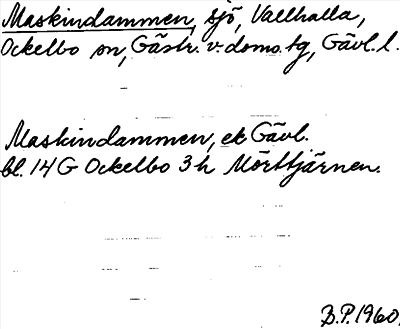 Maskindammen, sjö, Vallhalla,
Ockelbo sn, Gästr. v. doms. tg, Gävl. l.
Maskindammen, ek Gävl.
bl. 14 G Ockelbo 3 h Mörttjärnen.
B.P. 1960.